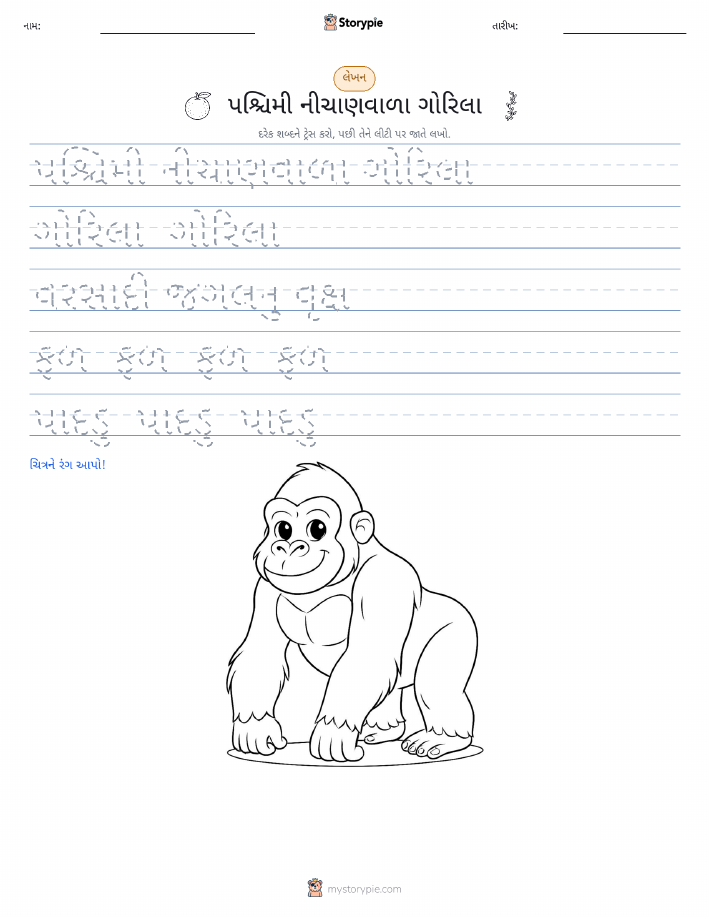 નામ:
Storypie
તારીખ:
લેખન
પશ્ચિમી નીચાણવાળા ગોરિલા
દરેક શબ્દને ટ્રેસ કરો, પછી તેને લીટી પર જાતે લખો.
પશ્ચિમી નીચાણવાળા ગોરિલા
ગોરિલા ગોરિલા
વરસાદી જગલનુ વૃક્ષ
ફળ ફળ ફળ ફળ
પાદડુ પાદડુ પાદડુ
ચિત્રને રંગ આપો!
mystorypie.com